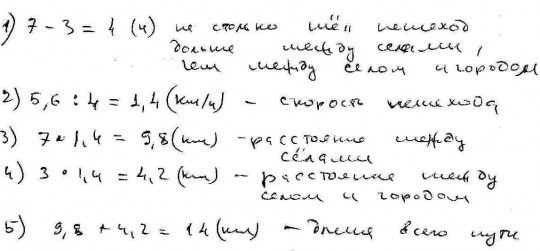 1) 7 - 3 = 4 (ч) на столько шёл пешеход
дольше между селами,
чем между селом и городом
2) 5,6 : 4 = 1,4 (км/ч) - скорость пешехода
3) 7 · 1,4 = 9,8 (км) - расстояние между
сёлами
4) 3 · 1,4 = 4,2 (км) - расстояние между
селом и городом
5) 9,8 + 4,2 = 14 (км) - длина всего пути